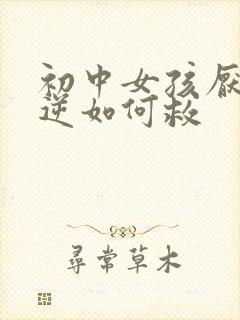 初中女孩厌
逆如何救
尋常草木